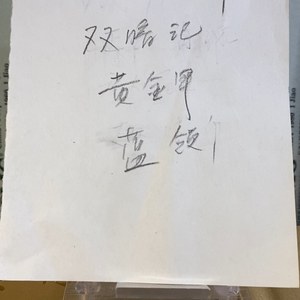 双瞎记
黄金甲
蓝领